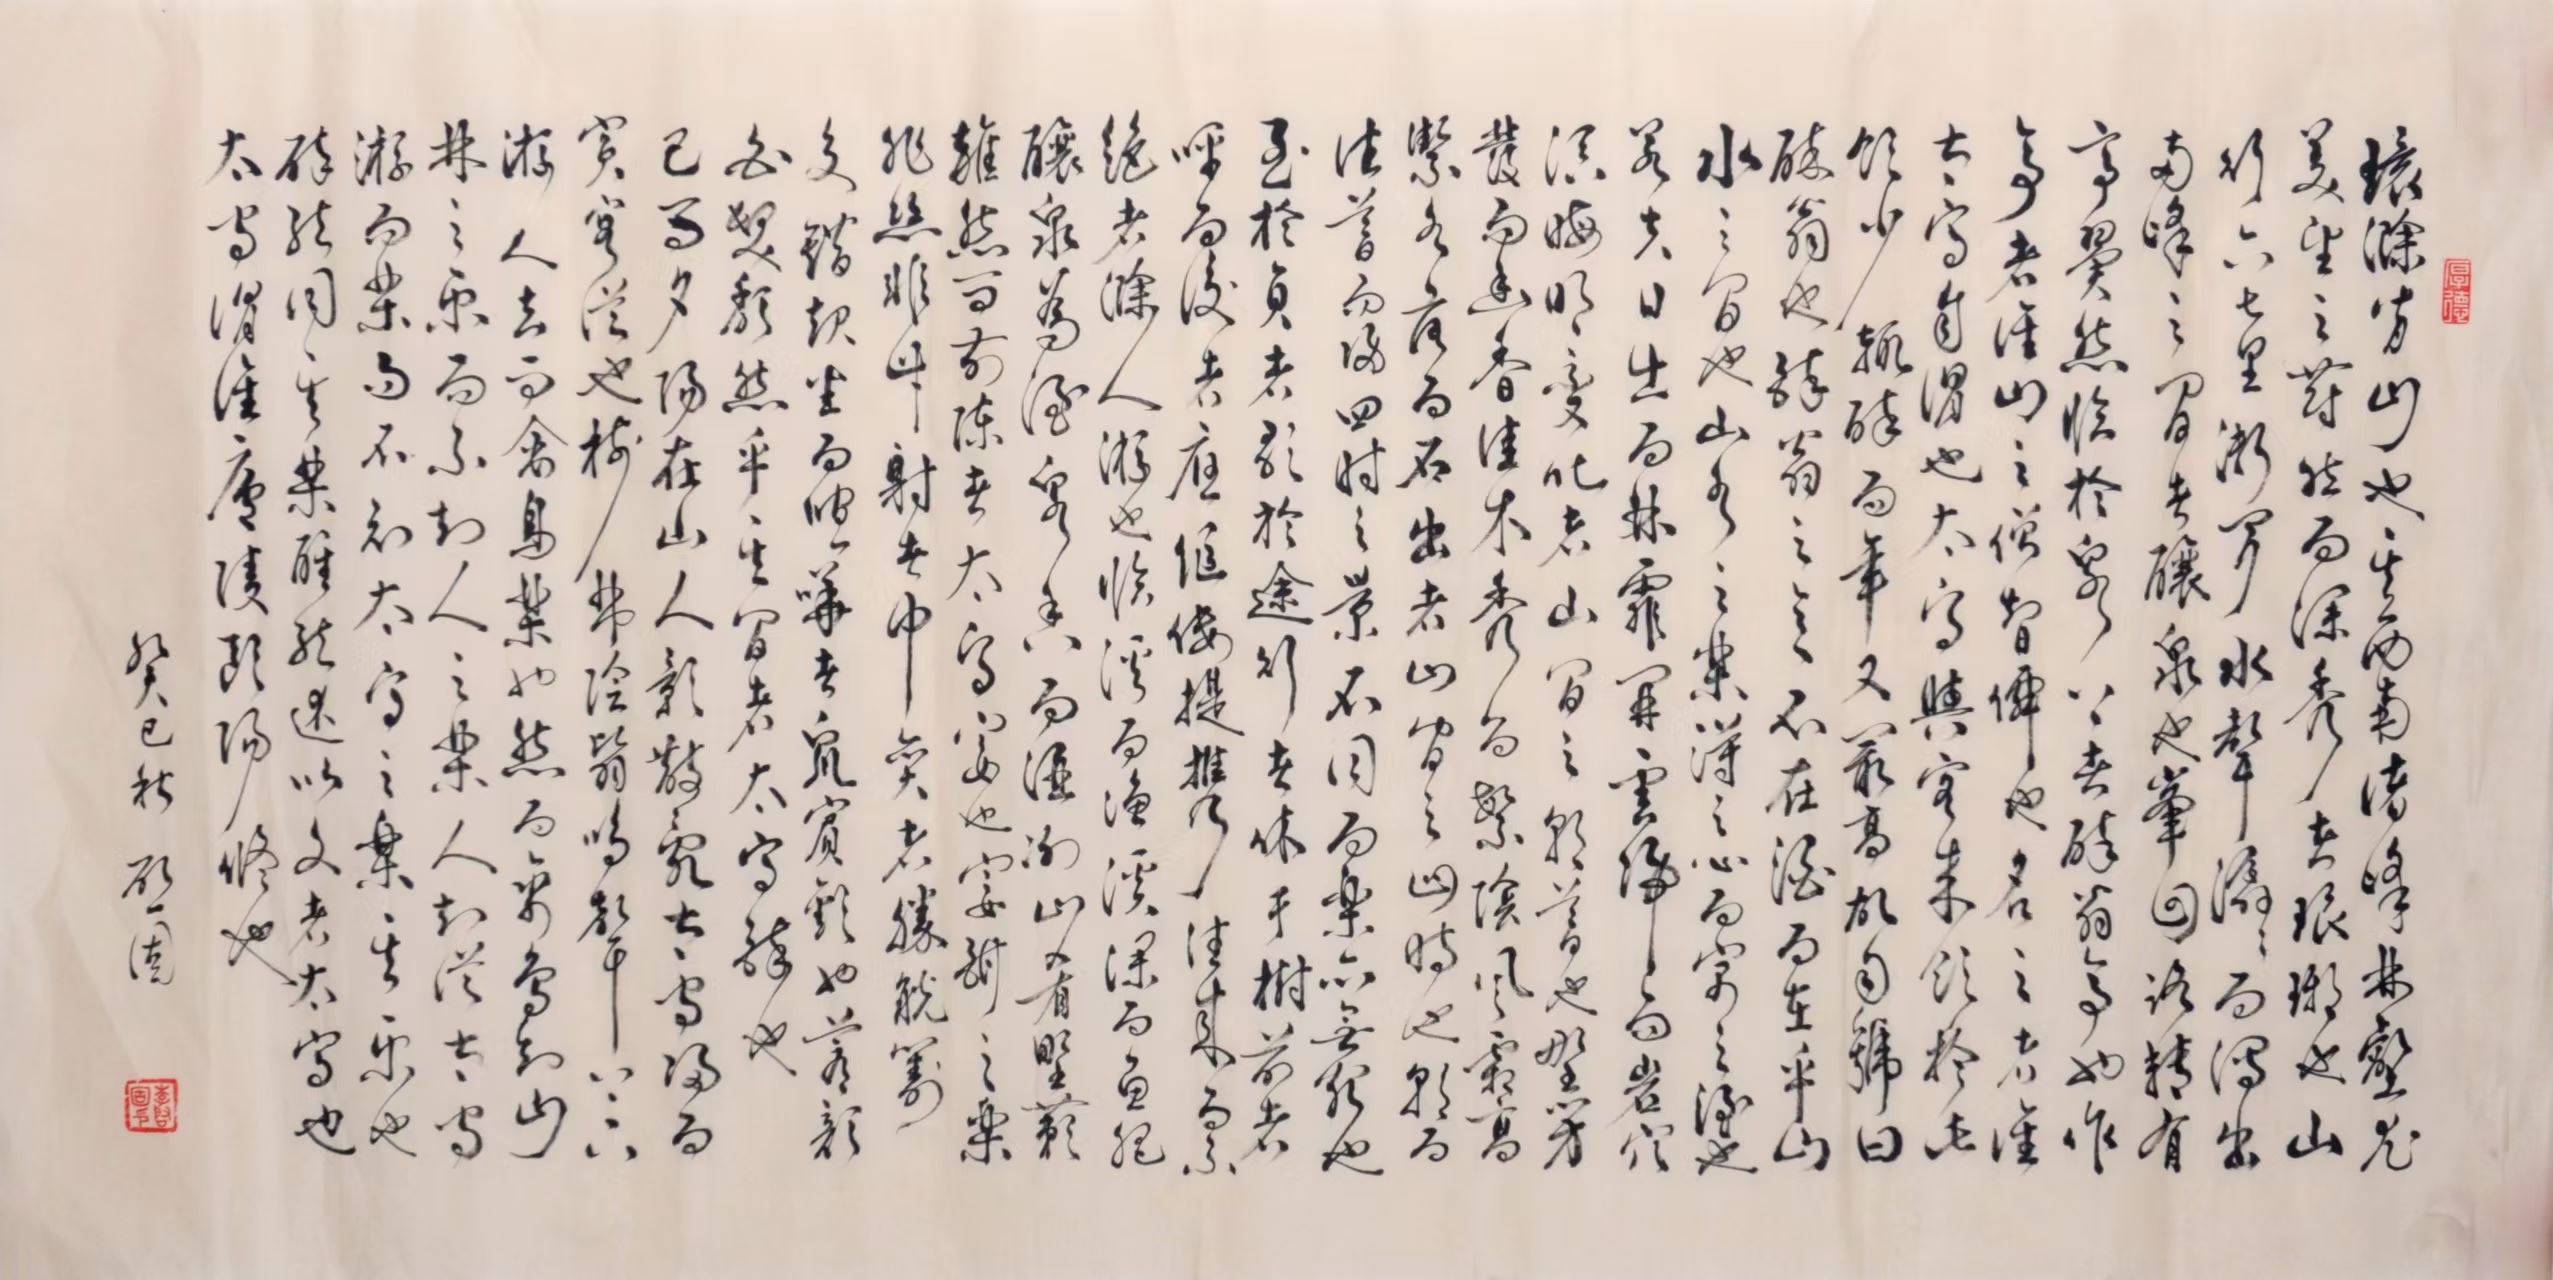 厚德
環滁皆山也其西南諸峰林壑尤
美望之蔚然而深秀者琅琊也山
行六七里漸聞水聲潺潺而瀉出
兩峰之間者釀泉也峯回路轉有
亭翼然臨於泉上者醉翁亭也作
亭者誰山之僧智僊也名之者誰
太守自謂也太守與客來飲於此
飲少輒醉而年又最高故自號曰
醉翁也醉翁之意不在酒而在乎山
水之間也山水之樂得之心而寓之酒也
若夫日出而林霏開雲歸而岩穴
暝晦明變化者山間之朝暮也野芳
發而幽香佳木秀而繁陰風霜高
潔水落而石出者山間之四時也朝而
往暮而歸四時之景不同而樂亦無窮也
至於負者歌於途行者休于樹前者
呼而後者應傴僂提攜往來而不
絕者滁人游也臨溪而漁溪深而魚肥
釀泉為酒泉香而酒洌山肴野蔌
雜然而前陳者太守宴也宴酣之樂
非絲非竹射者中奕者勝觥籌
交錯起坐而喧嘩者眾賓歡也蒼顏
白髮頹然乎其間者太守醉也
已而夕陽在山人影散亂太守歸而
賓客從也樹林陰翳鳴聲上下
游人去而禽鳥樂也然而禽鳥知山
林之樂而不知人之樂人知從太守
游而樂而不知太守之樂其樂也
醉能同其樂醒能述以文者太守也
太守謂誰廬陵歐陽修也
癸巳秋 啟固